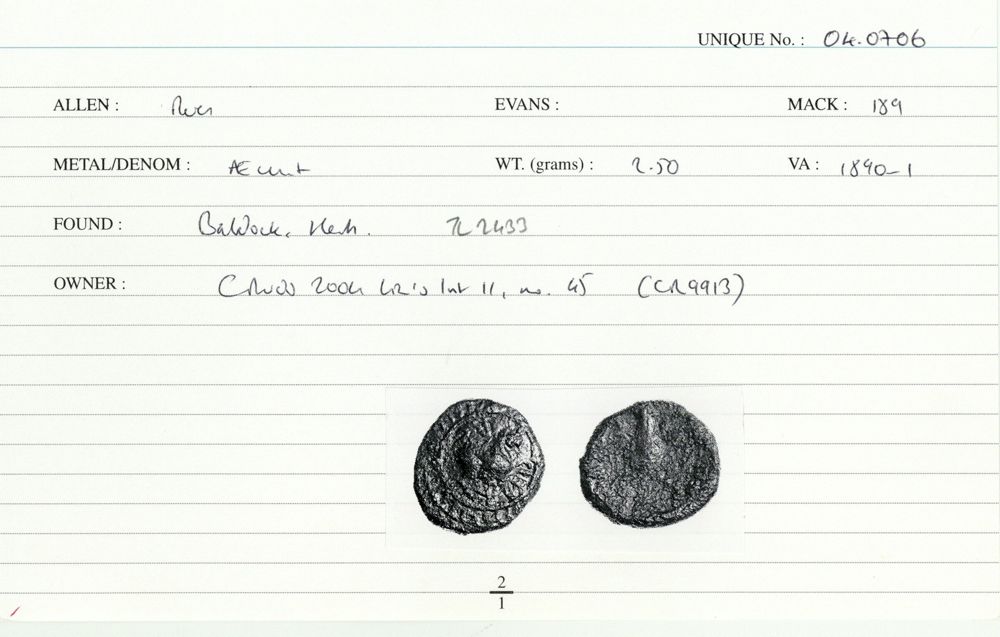 UNIQUE No. : 04.0706
ALLEN : Rues EVANS : MACK : 189
METAL/DENOM : Æ unit WT. (grams) : 2.50 VA : 1890-1
FOUND : Baldock, Herts. TL 2433
OWNER : 2004 Int 11, no. 45 (CR9913)
2
1